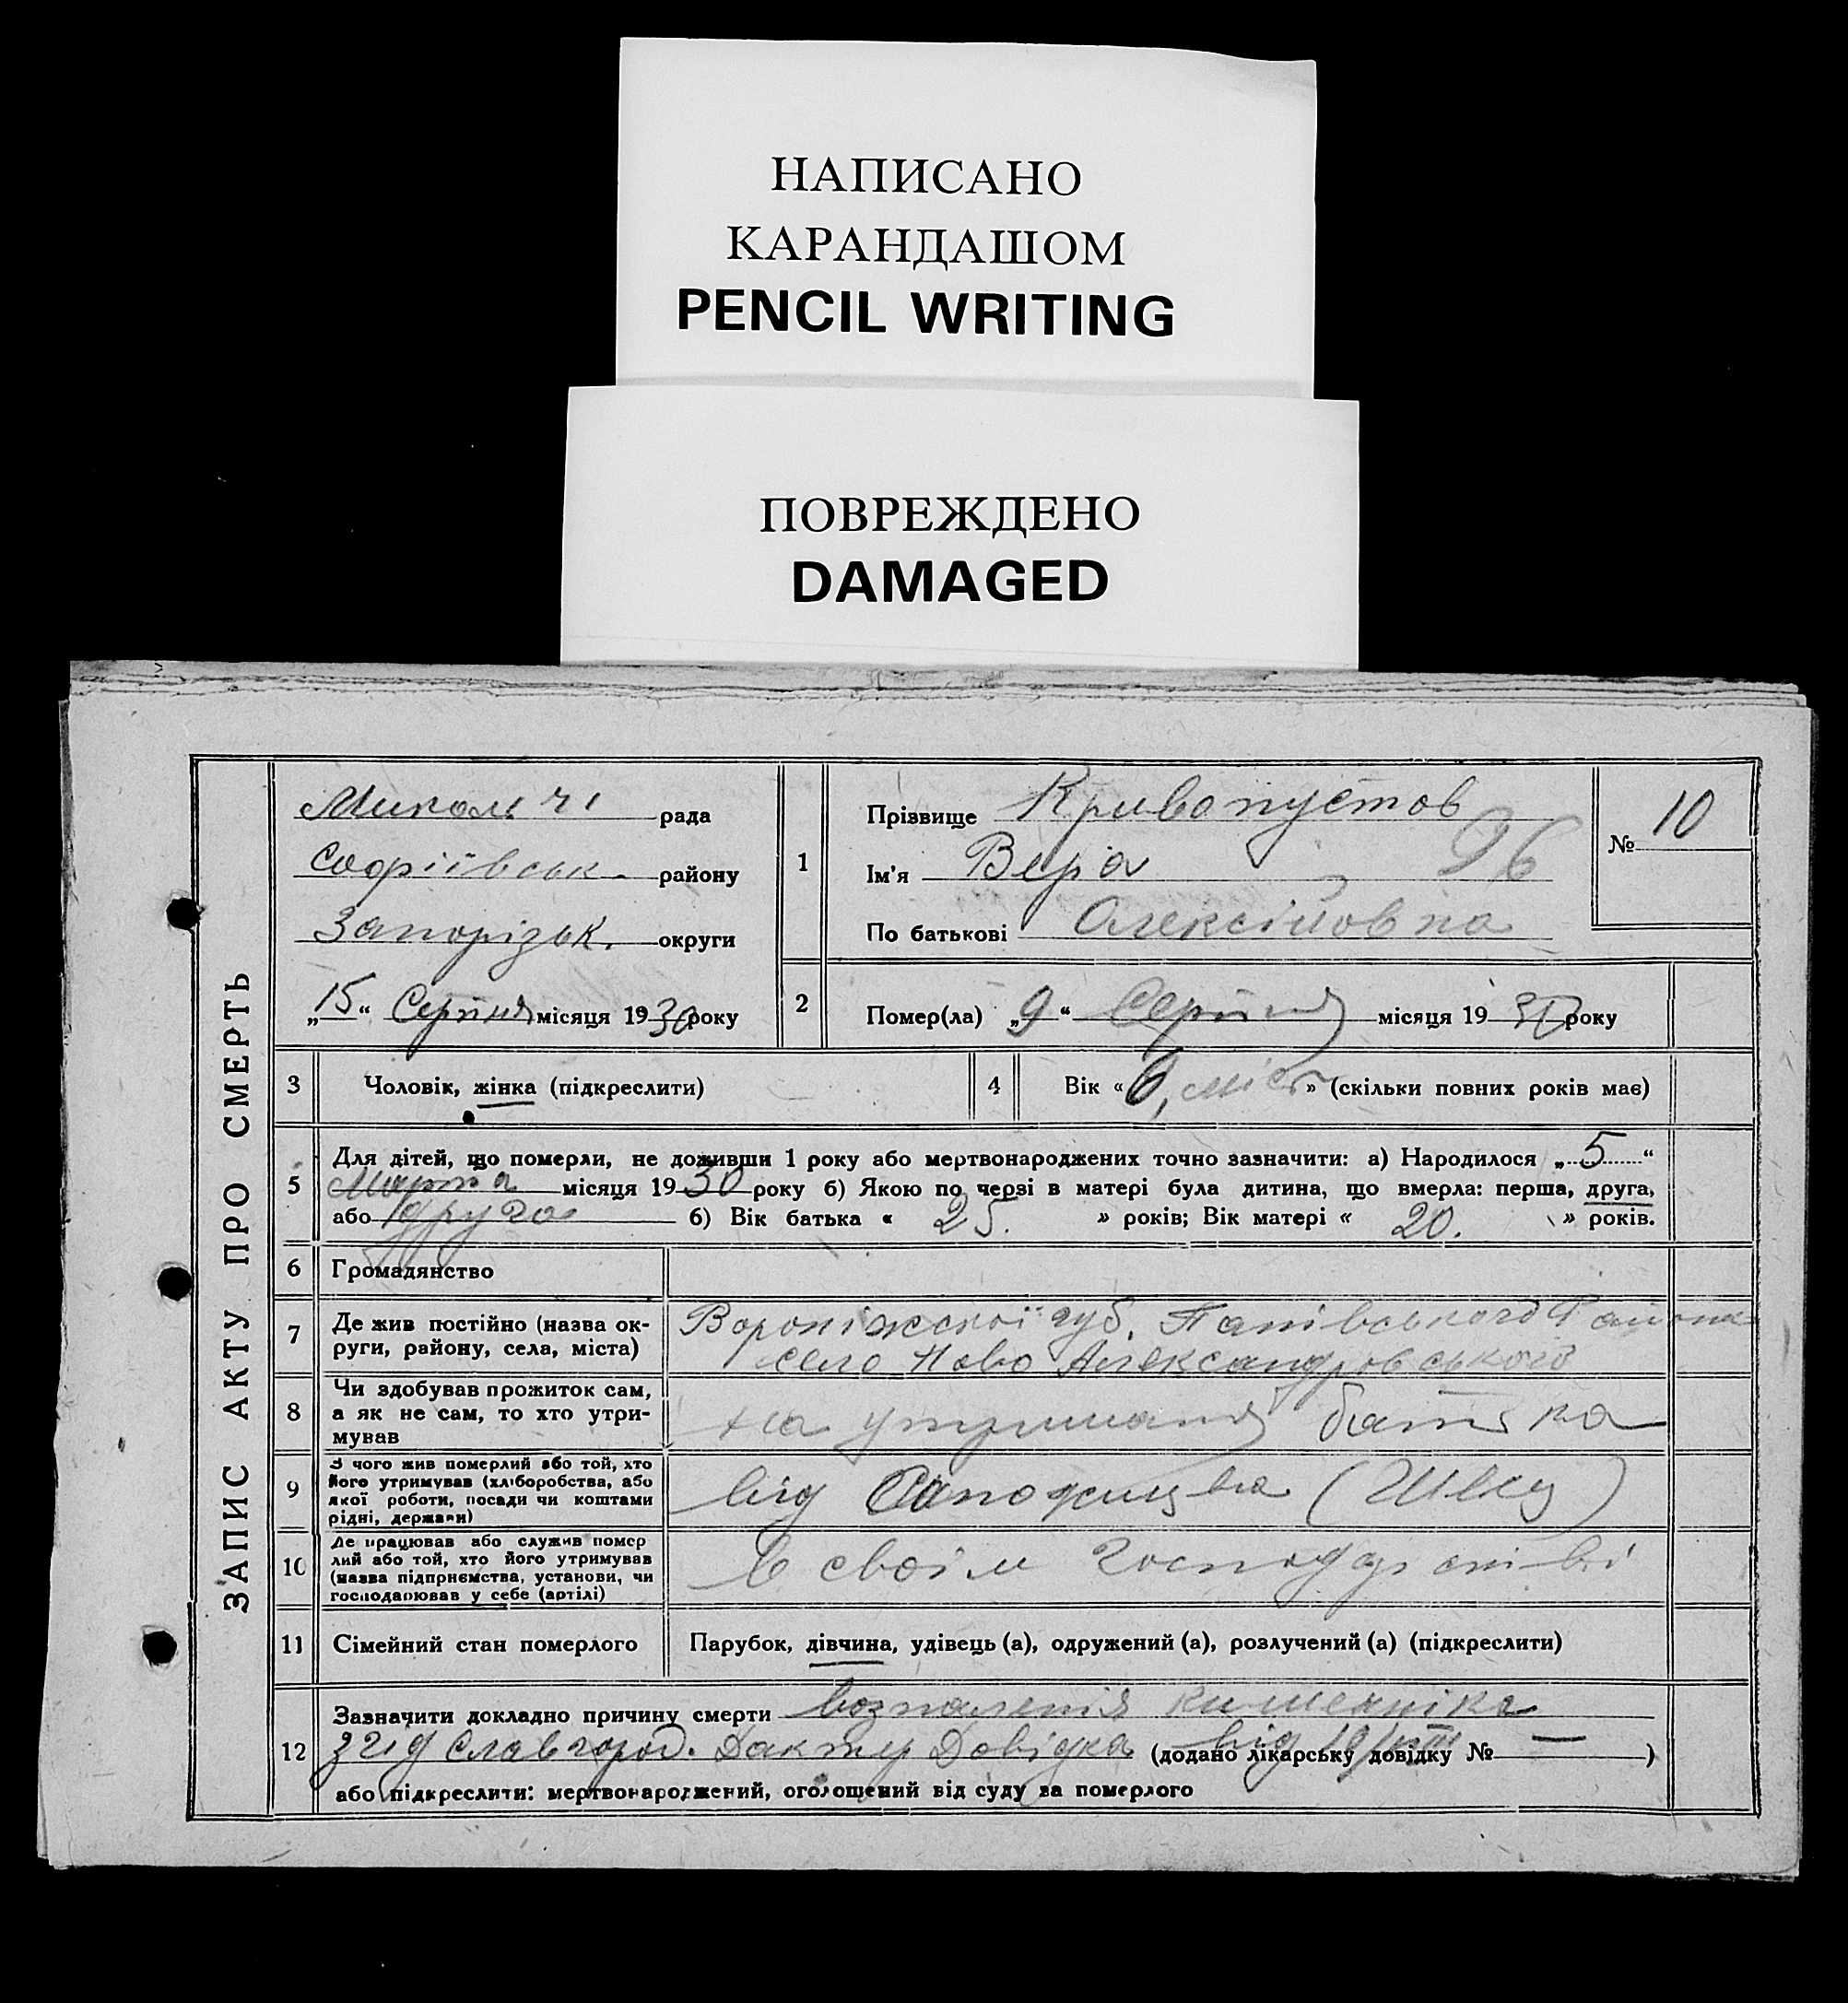 НАПИСАНО
КАРАНДАШОМ
PENCIL WRITING
ПОВРЕЖДЕНО
DAMAGED
ЗАПИС АКТУ ПРО СМЕРТЬ
рада
Софіївськ. району
Запорізьк. округи
„15“ Серпня місяця 1930 року
1
Прізвище Кривопустов
Ім'я Вера 96
По батькові Олексійовна
№ 10
2
Помер(ла) „9“ Серпня місяця 1930 року
3 Чоловік, жінка (підкреслити)
4 Вік «6, міс» (скільки повних років має)
5
Для дітей, що померли, не доживши 1 року або мертвонароджених точно зазначити: а) Народилося „5“
Марта місяця 1930 року б) Якою по черзі в матері була дитина, що вмерла: перша, друга,
або друга б) Вік батька « 25. » років; Вік матері « 20. » років.
6 Громадянство
7 Де жив постійно (назва округи, району, села, міста)
Вороніжської губ. району
село Ново Александровського
8 Чи здобував прожиток сам,
а як не сам, то хто утри-
мував
на утриманя батька
9 З чого жив померлий або той, хто
його утримував (хліборобства, або
якої роботи, посади чи коштами
рідні, держави)
від (Швец)
10 Де працював або служив помер
лий або той, хто його утримував
(назва підприємства, установи, чи
господарював у себе (артілі)
в своїм господарстві
11 Сімейний стан померлого
Парубок, дівчина, удівець (а), одружений (а), розлучений (а) (підкреслити)
12
Зазначити докладно причину смерти возпаленія кишечніка
згід Славгород. Доктур Довідка від 10/VIII (додано лікарську довідку № — )
або підкреслити: мертвонароджений, оголошений від суду за померлого